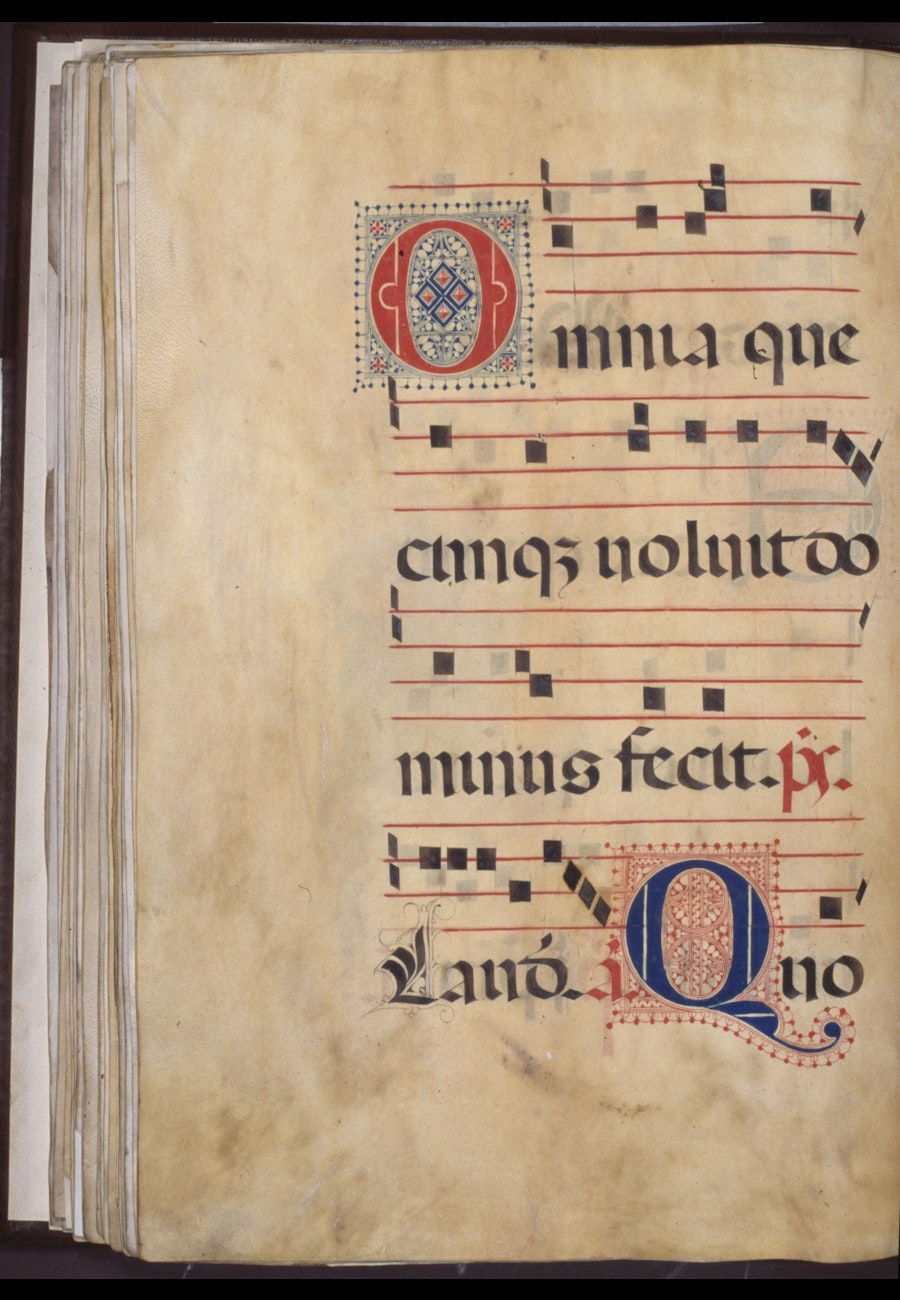 Omnia que
cunqꝫ uoluit do
minus fecit. p̄s.
Laud̄. a. Quo